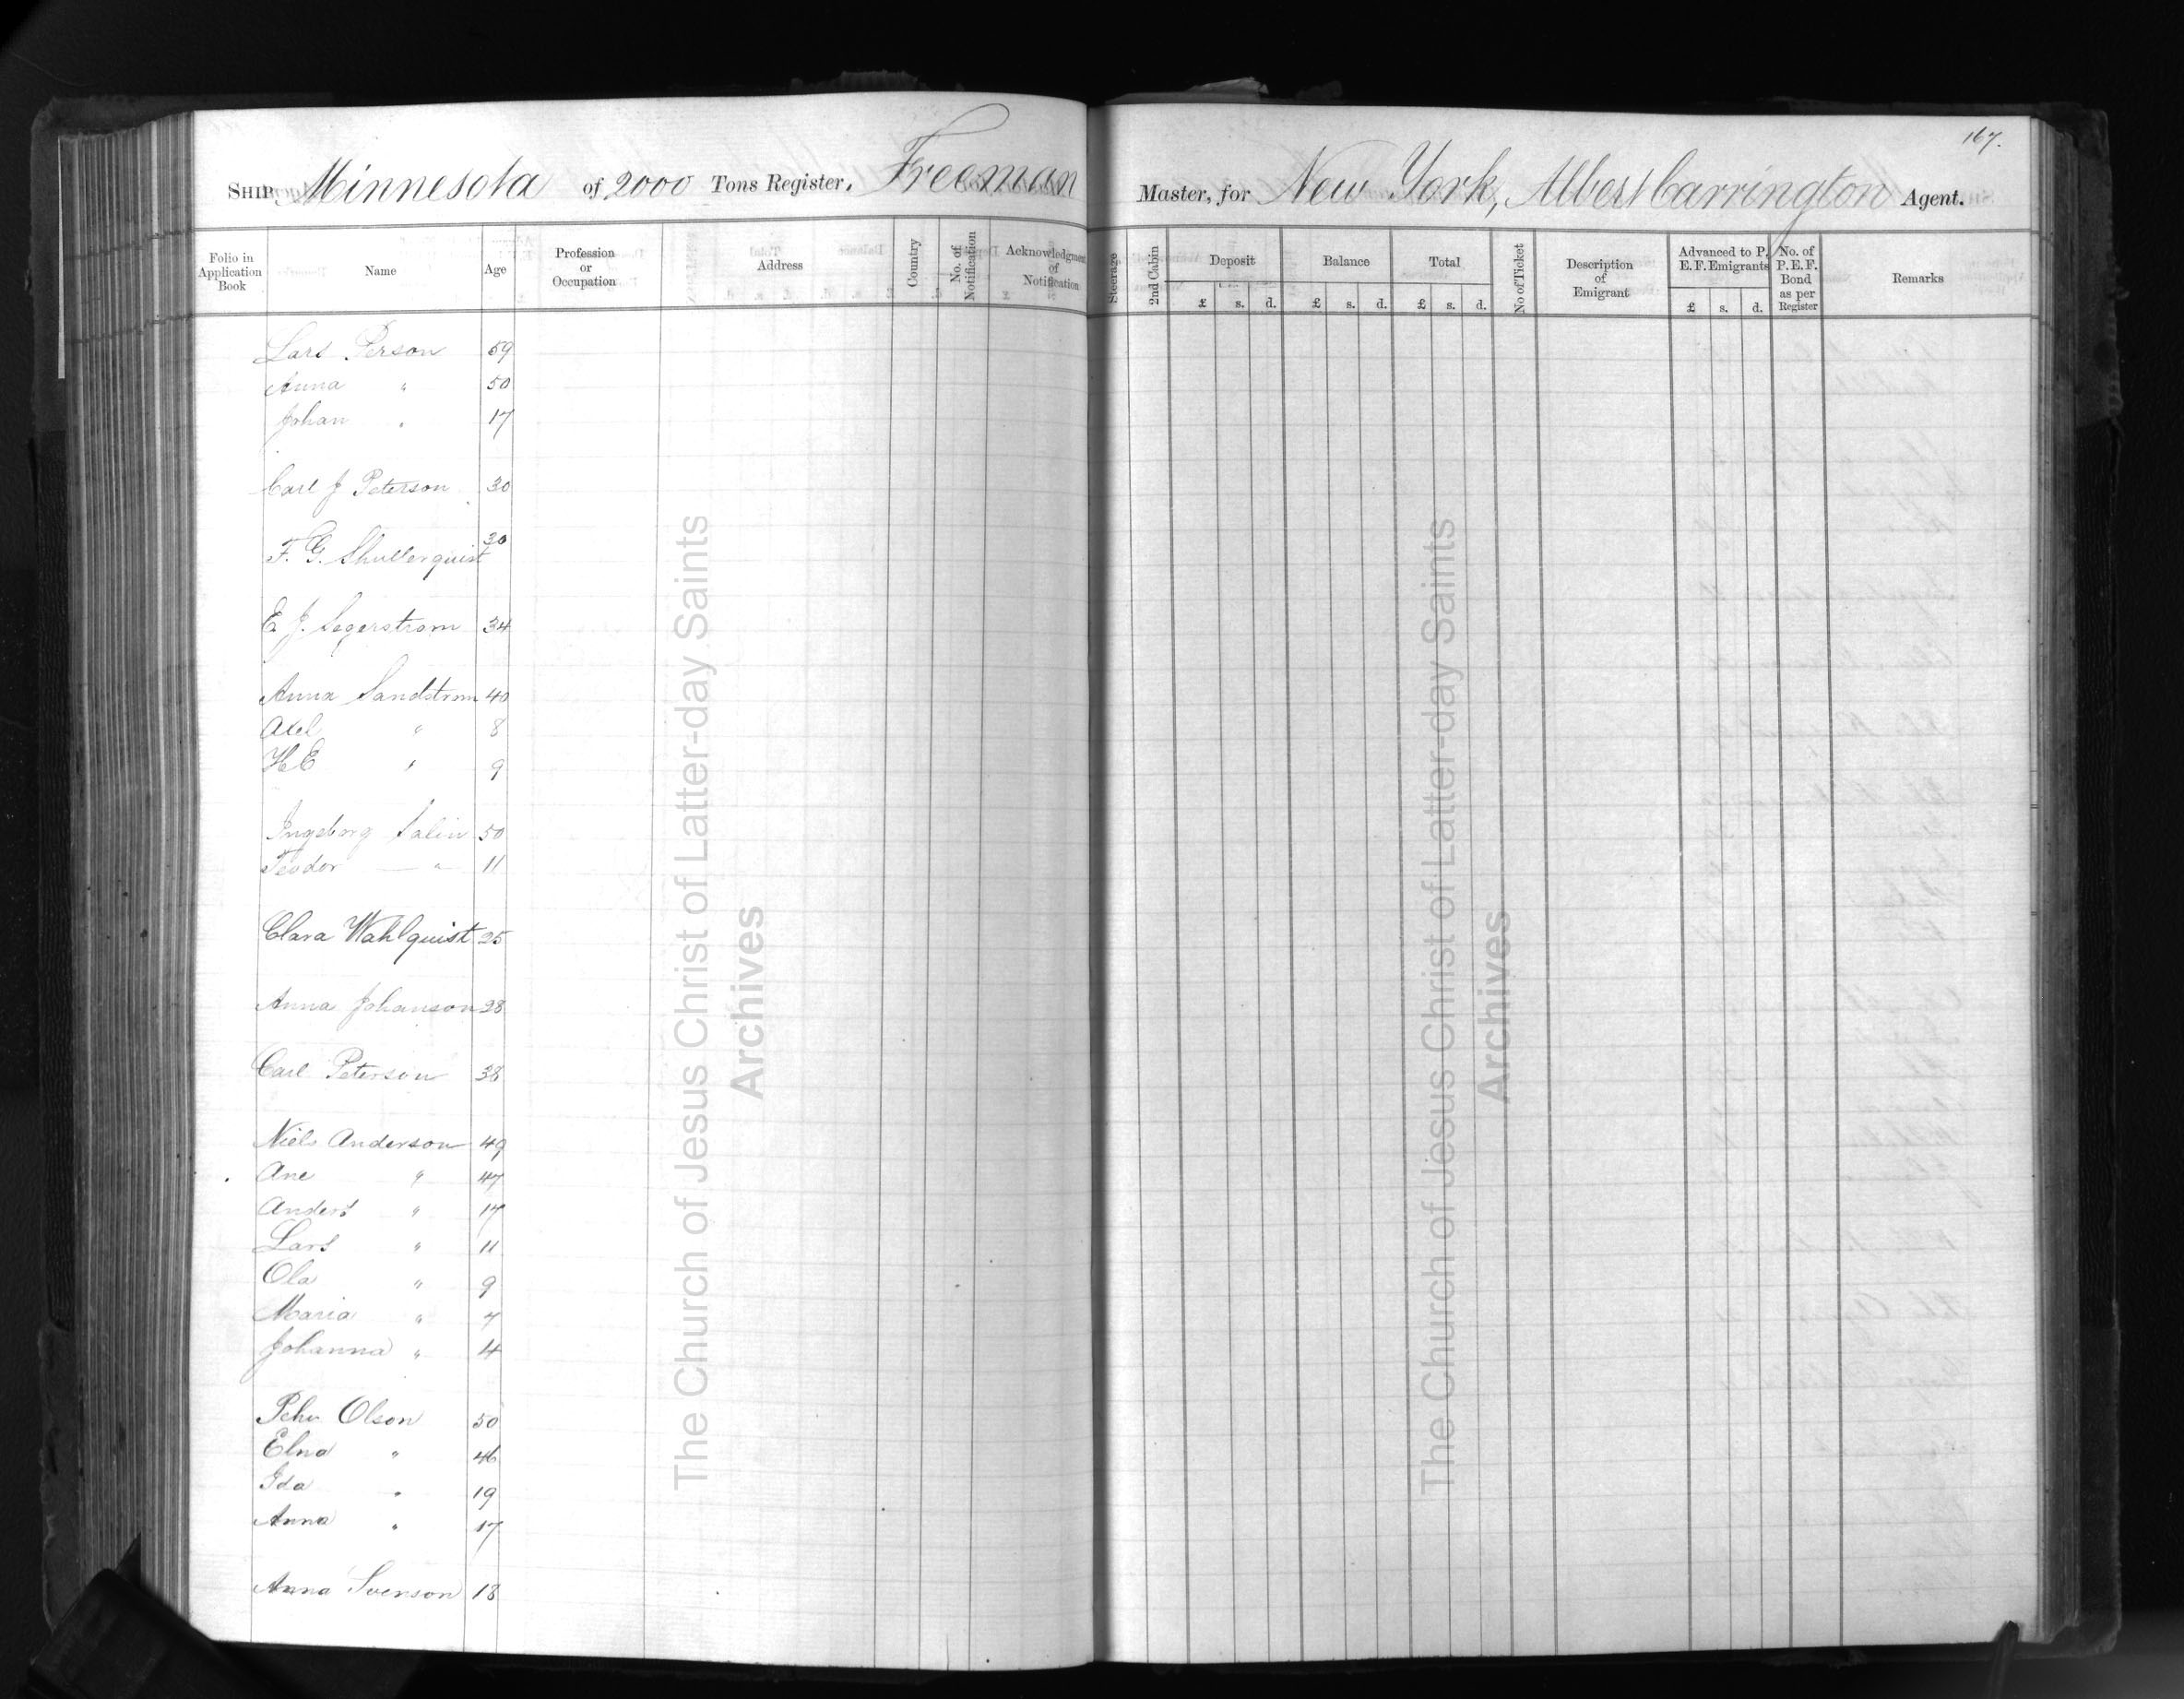 167.
SHIP Minnesota of 2000 Tons Register. Freeman Master, for New York, Albert Carrington Agent.
Folio in Application Book Name Age Profession or Occupation Address Country No. of Notification Acknowledgment of Notification Steerage 2nd Cabin Deposit £ s. d. Balance £ s. d. Total £ s. d. No of Ticket Description of Emigrant Advanced to P. E. F. Emigrants £ s. d. No. of P.E.F. Bond as per Register Remarks
Lars Person 59
Anna " 50
Johan " 17
Carl J Peterson 30
F. G. 30
E. J. Segerstrom 34
Anna Sandstrom 40
Axel " 8
H E " 9
Ingeborg Salin 50
Teodor — " 11
Clara Wahlquist 25
Anna Johanson 28
Carl Peterson 38
Niels Anderson 49
Ane " 47
Anders " 17
Lars " 11
Ola " 9
Maria " 7
Johanna " 4
Pehr Olson 50
Elna " 46
Ida " 19
Anna " 17
Anna Svenson 18
The Church of Jesus Christ of Latter-day Saints
Archives
The Church of Jesus Christ of Latter-day Saints
Archives